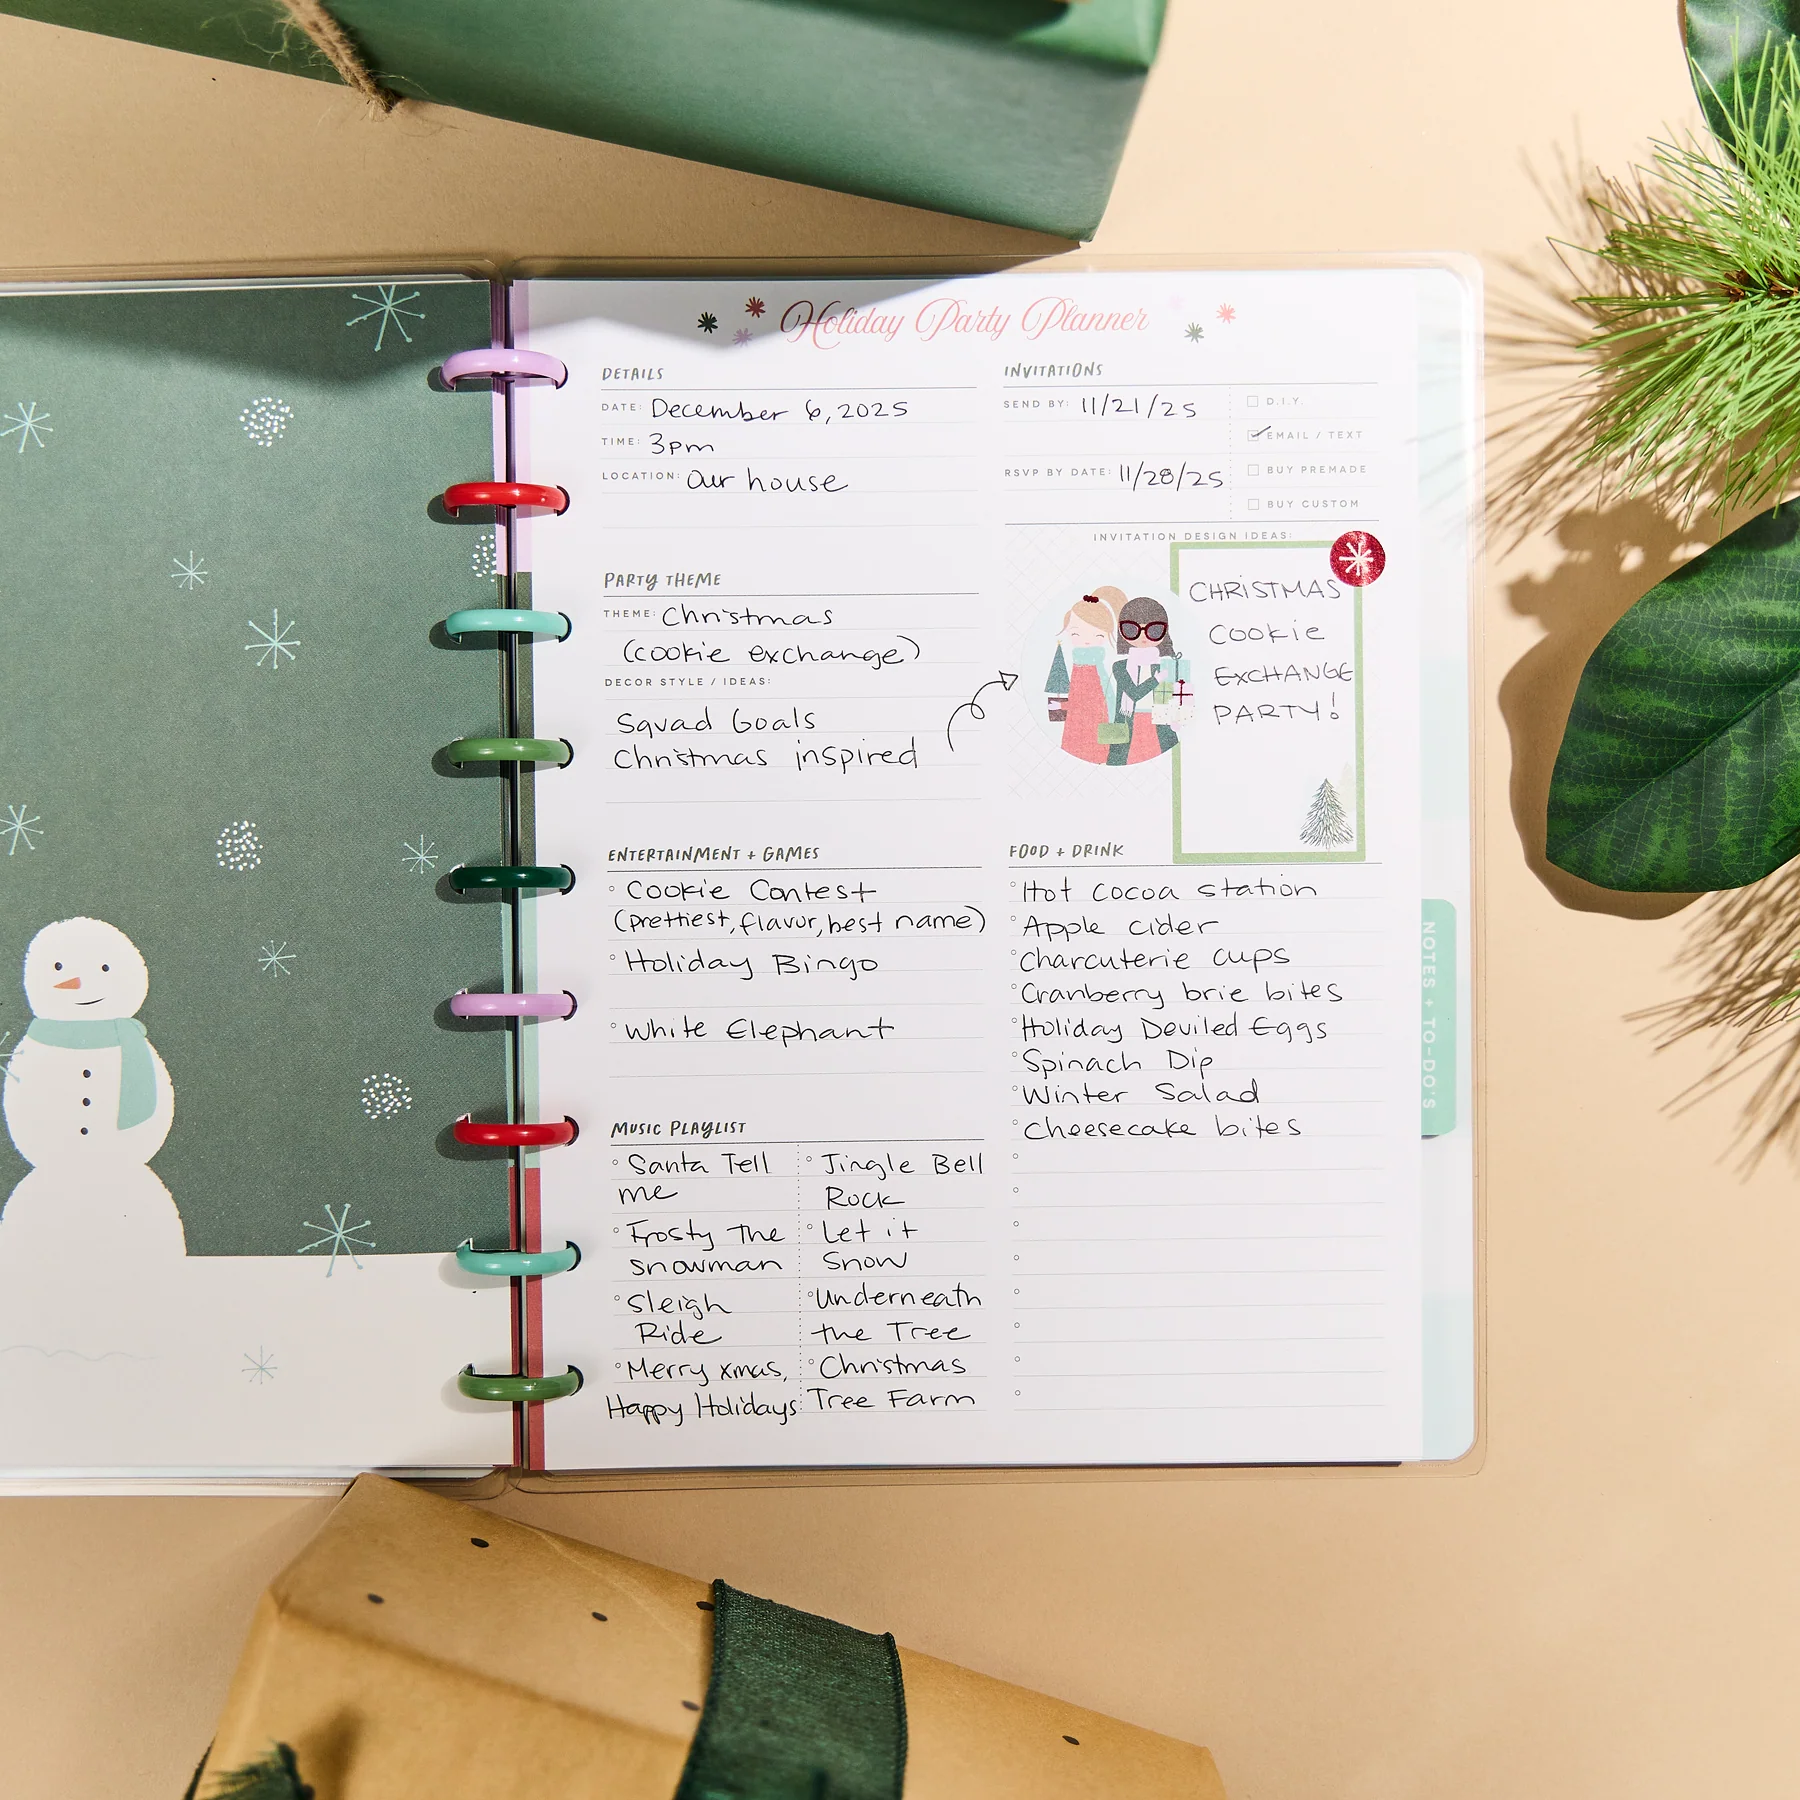 Holiday Party Planner
DETAILS
DATE: December 6, 2025
TIME: 3pm
LOCATION: Our house
INVITATIONS
SEND BY: 11/21/25
RSVP BY DATE: 11/28/25
D.I.Y.
EMAIL / TEXT
BUY PREMADE
BUY CUSTOM
INVITATION DESIGN IDEAS:
CHRISTMAS
COOKIE
EXCHANGE
PARTY!
PARTY THEME
THEME: Christmas
(cookie exchange)
DECOR STYLE / IDEAS:
Squad Goals
Christmas inspired
ENTERTAINMENT + GAMES
Cookie Contest
(prettiest, flavor, best name)
Holiday Bingo
White Elephant
FOOD + DRINK
Hot cocoa station
Apple cider
Charcuterie cups
Cranberry brie bites
Holiday Deviled Eggs
Spinach Dip
Winter Salad
Cheesecake bites
MUSIC PLAYLIST
Santa Tell
me
Frosty The
snowman
Sleigh
Ride
Merry xmas,
Happy Holidays
Jingle Bell
Rock
Let it
Snow
Underneath
the Tree
Christmas
Tree Farm
NOTES + TO-DO'S